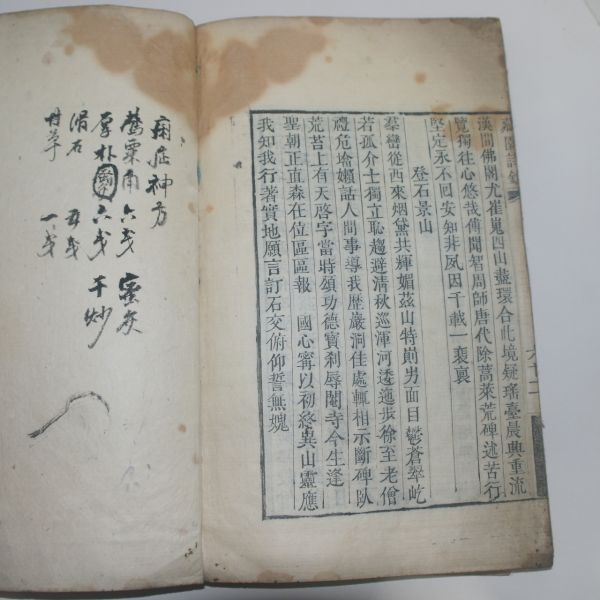 漢間佛閣尤崔嵬四山盡環合此境疑瑤臺晨興重流
覽獨往心悠哉傳聞智周師唐代除蒿萊荒碑述苦行
堅定永不回安知非夙因千載一裴裏
登石景山
羣巒從西來烟黛共輝媚茲山特剙男面目鬱蒼翠屹
若孤介士獨立恥趨避清秋巡渾河逶迤步徐至老僧
禮危墖嬾話人間事導我歷巖洞佳處輒相示斷碑臥
荒苔上有天啓字當時頌功德寶刹辱閹寺今生逢
聖朝正直森在位區區報 國心甯以初終異山靈應
我知我行著實地願言訂石交俯仰誓無媿
六十二
痢症神方
鶯粟甬 六戋 蜜灸
厚朴 六戋 干炒
滑石 五戋
甘草 一戋